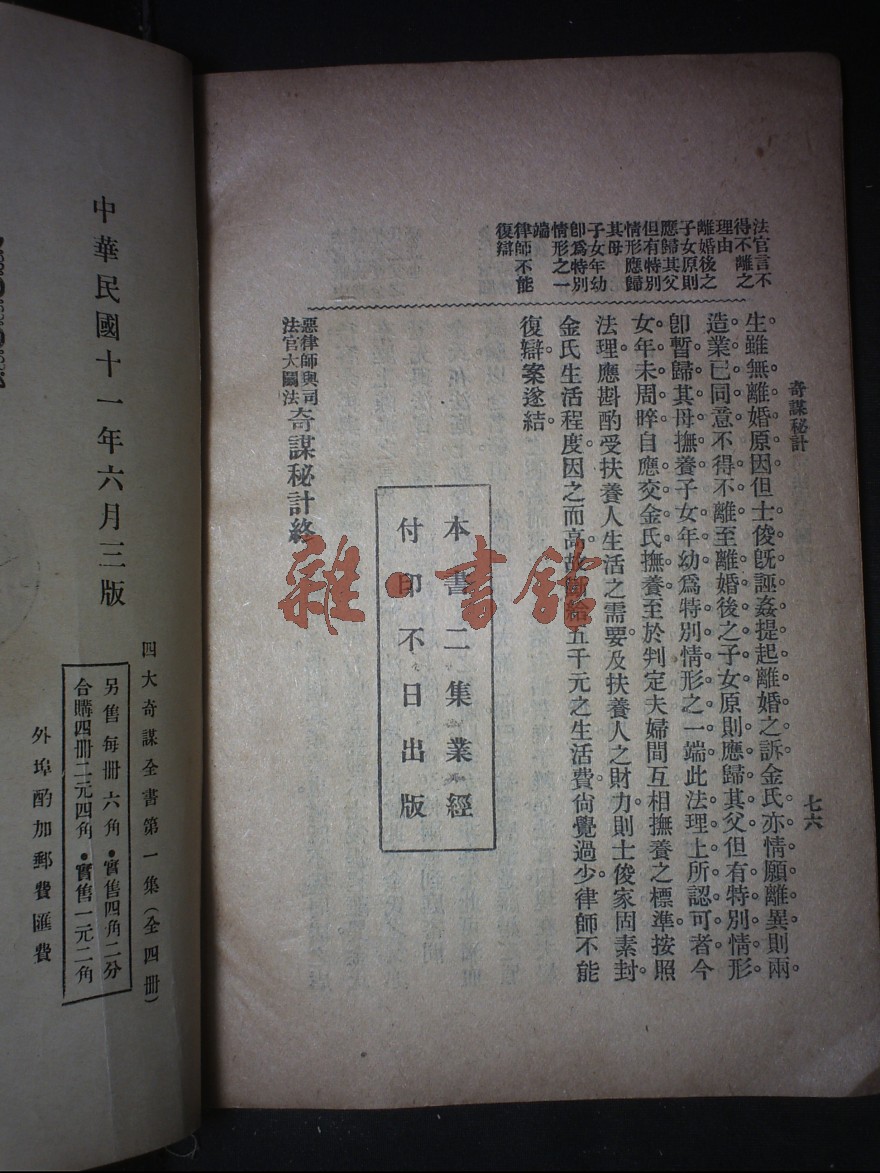 奇謀秘計
七六
法官言不
得不離之
理由
離婚後之
子女原則
應歸其父
但有特別
情形應歸
其母
子女年幼
卽爲特別
情形之一
端
律師不能
復辯
生雖無離婚原因但士俊旣誣姦提起離婚之訴金氏亦情願離異則兩
造業已同意不得不離至離婚後之子女原則應歸其父但有特別情形
卽暫歸其母撫養子女年幼爲特別情形之一端此法理上所認可者今
女年未周晬自應交金氏撫養至於判定夫婦間互相撫養之標準按照
法理應斟酌受扶養人生活之需要及扶養人之財力則士俊家固素封
金氏生活程度因之而高故斷給五千元之生活費尙覺過少律師不能
復辯案遂結
本書二集業經
付印不日出版
惡律師與司
法官大鬭法
奇謀秘計終
雜·書館
四大奇謀全書第一集(全四册)
另售每册六角·實售四角二分
合購四册二元四角·實售一元二角
外埠酌加郵費匯費
中華民國十一年六月三版